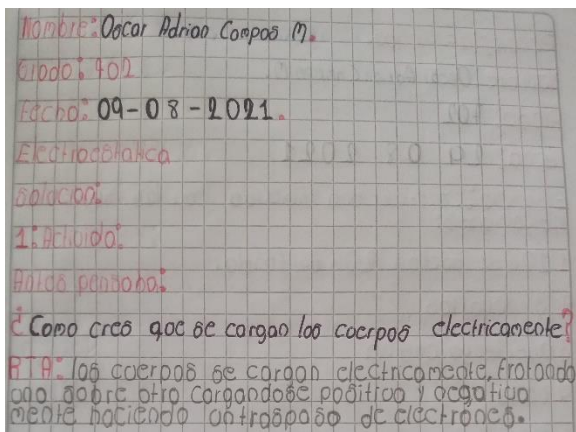 Nombre: Oscar Adrian Campos M.
Grado: 702
Fecha: 09-08-2021.
Electrostatica
Solucion:
1: Actividad:
Antes pensaba:
¿Como cres que se cargan los cuerpos electricamente?
RTA: los cuerpos se cargan electricamente, frotando
uno sobre otro cargandose positiva y negativa
mente haciendo un traspaso de electrones.